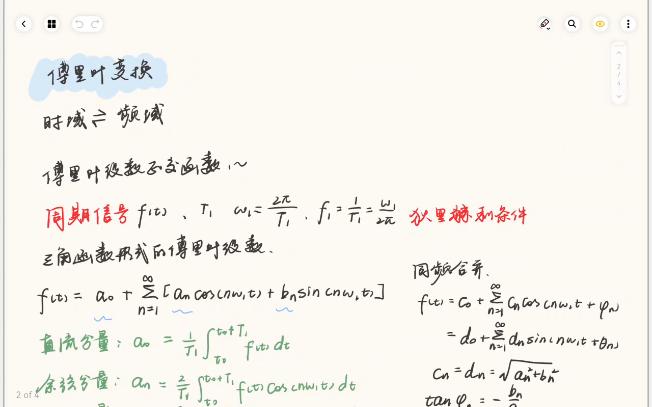 傅里叶变换
时域 ⇌ 频域
傅里叶级数正交函数.~
周期信号 f(t) 、 T₁ ω₁ = 2π/T₁ . f₁ = 1/T₁ = ω₁/2π 狄里赫利条件
三角函数形式的傅里叶级数.
f(t) = a₀ + ∞∑n=1 [aₙ cos(nω₁t) + bₙ sin(nω₁t)]
直流分量: a₀ = 1/T₁ ∫t₀^t₀+T₁ f(t) dt
余弦分量: aₙ = 2/T₁ ∫t₀^t₀+T₁ f(t) cos(nω₁t) dt
同频合并.
f(t) = c₀ + ∞∑n=1 cₙ cos(nω₁t + φₙ)
= d₀ + ∞∑n=1 dₙ sin(nω₁t + θₙ)
cₙ = dₙ = √(aₙ² + bₙ²)
tan φₙ = - bₙ/
2 / 4
2 of 4